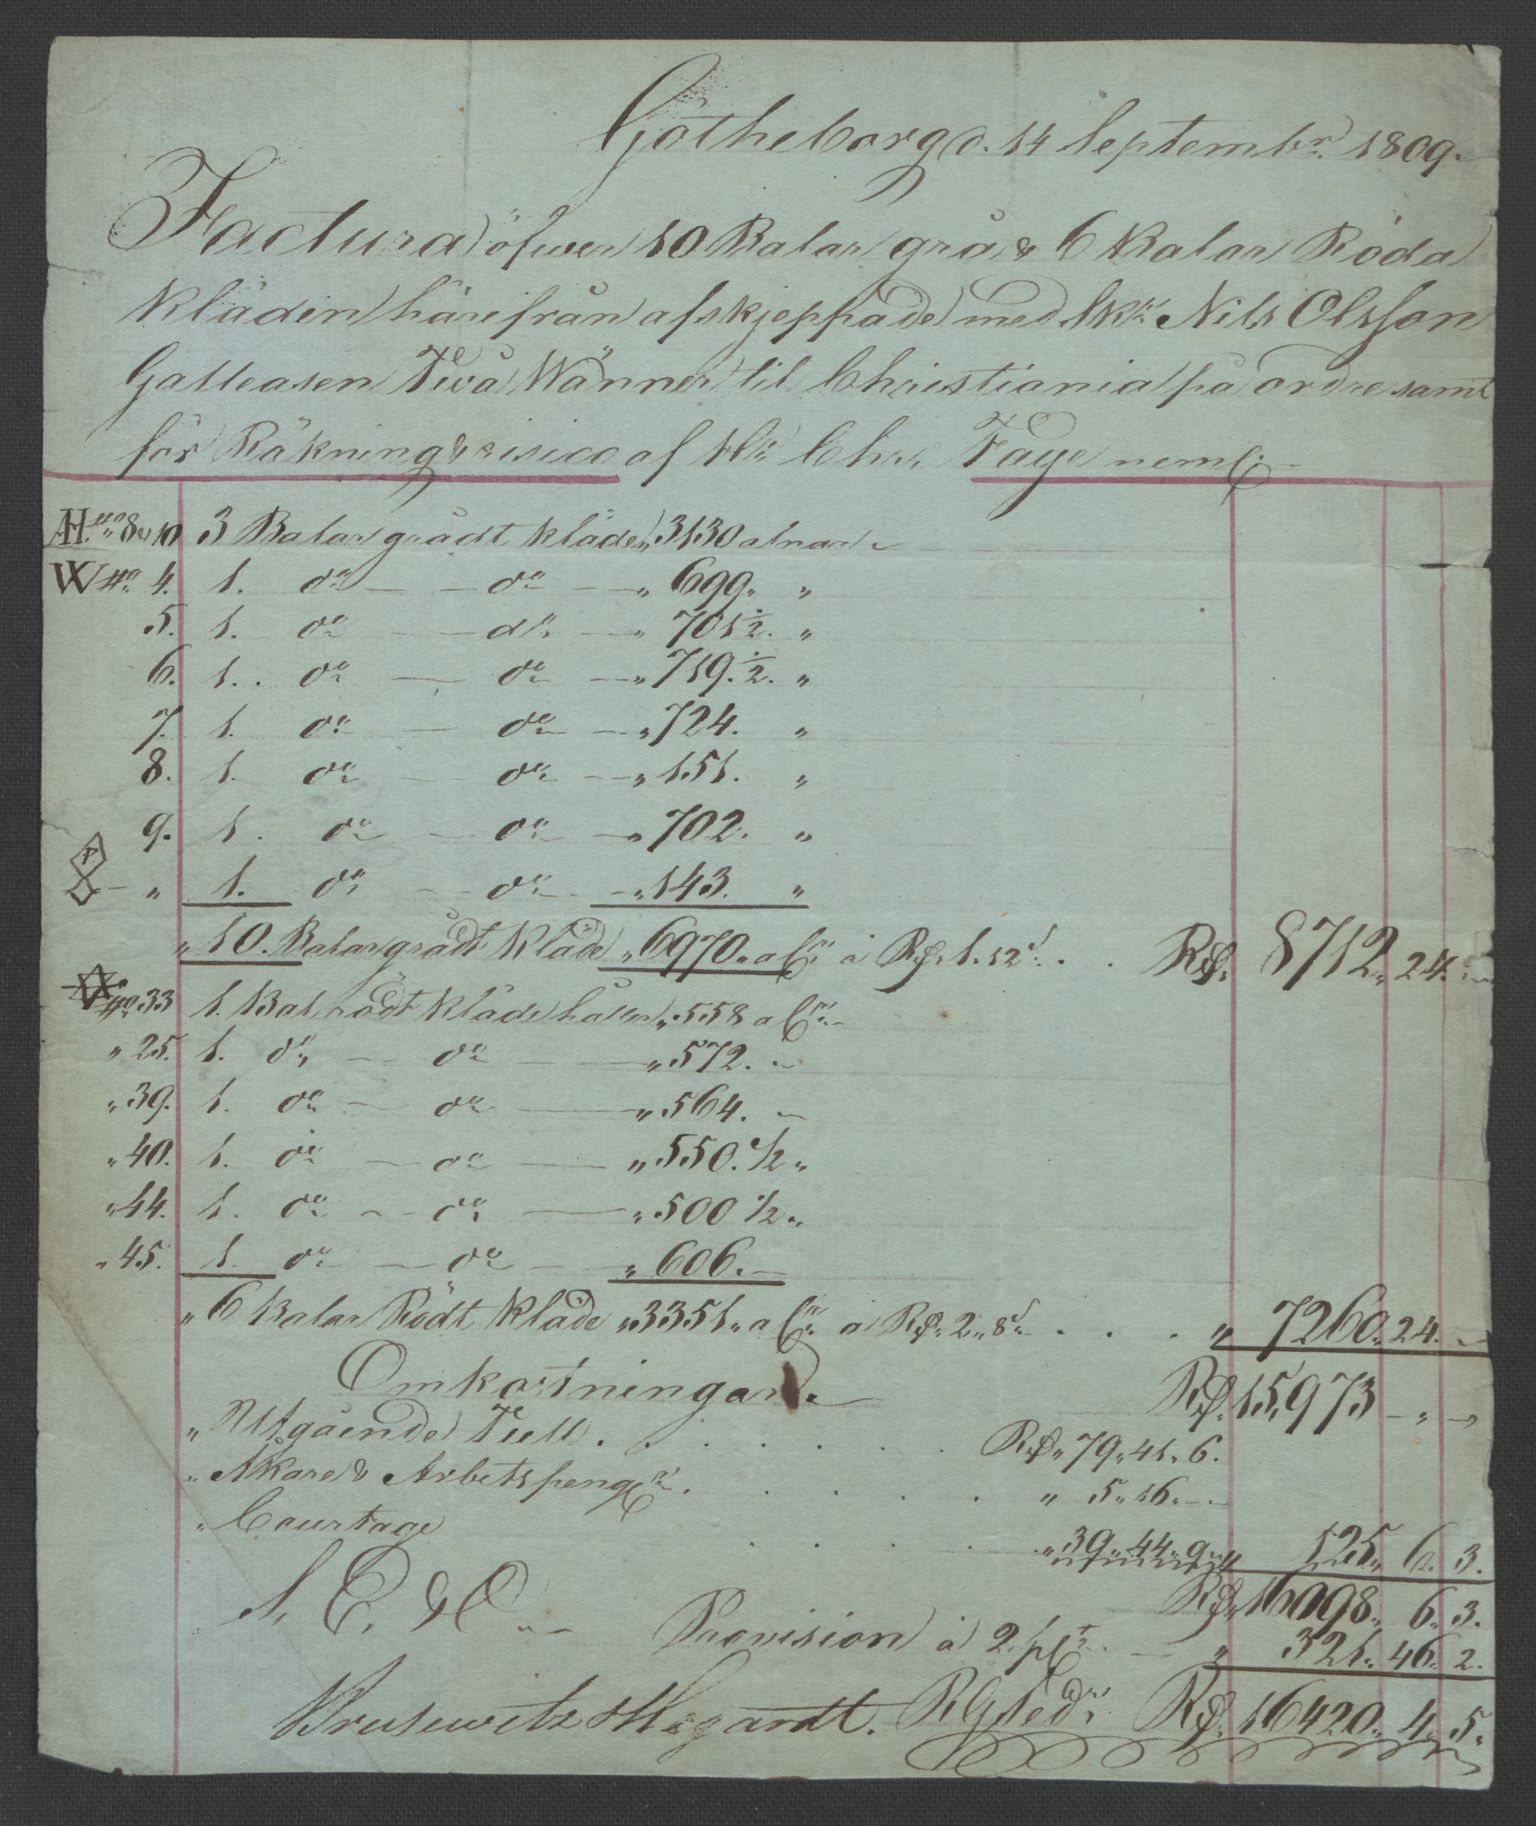 Götheborg d. 14 Septembr. 1809.
Factura öfwer 10 Balar grå & 6 Balar Röda
Kläden härifrån afskjeppade med Skr. Nils Olsson
Galleasen Twå Wänner til Christiania på ordre samt
för Räkning & risico af Hr. Chr. Faye neml:
AH. No. 8 a 10 3 Balar grådt kläde „ 3130 alnar
W No. 4. 1. do — do — „ 699. „
5. 1. do — do — „ 701½. „
6. 1. do — do — „ 719.½. „
7. 1. do — do — „ 724. „
8. 1. do — do — „ 151. „
9. 1. do — do — „ 702. „
— „ 1. do — do — „ 143. „
„ 10. Balar grådt Kläde „ 6970. alr. à Rd. 1.12s. . . Rd. 8712„ 24. —
No. 33 1. Bal rödt Kläde håller „ 558 alr. —
„ 25. 1. do — do — „ 572. —
„ 39. 1. do — do — „ 564. —
„ 40. 1. do — do — „ 550.½ „
„ 44. 1. do — do — „ 500½ „
„ 45. 1. do — do — „ 606. —
„ 6 Balar Rödt Kläde „ 3351„ alr. à Rd. 2„ 8s. . . . „ 7260„ 24. —
Omkostningar. Rd. 15,973 — „ —
„ Utgående Tull . . . . . . . Rd. 79„ 41„ 6.
„ Åkare & Arbetspengr. . . . . . „ 5„ 16. —
„ Courtage . . . . . „ 39„ 44„ 9„ „ 125„ 6. 3.
Rd. 16098„ 6. 3.
S. E. & O. Provision à 2 pCt. — „ 321„ 46. 2.
Brusewitz & Hegardt. RGsedr. Rd. 16420„ 4„ 5.